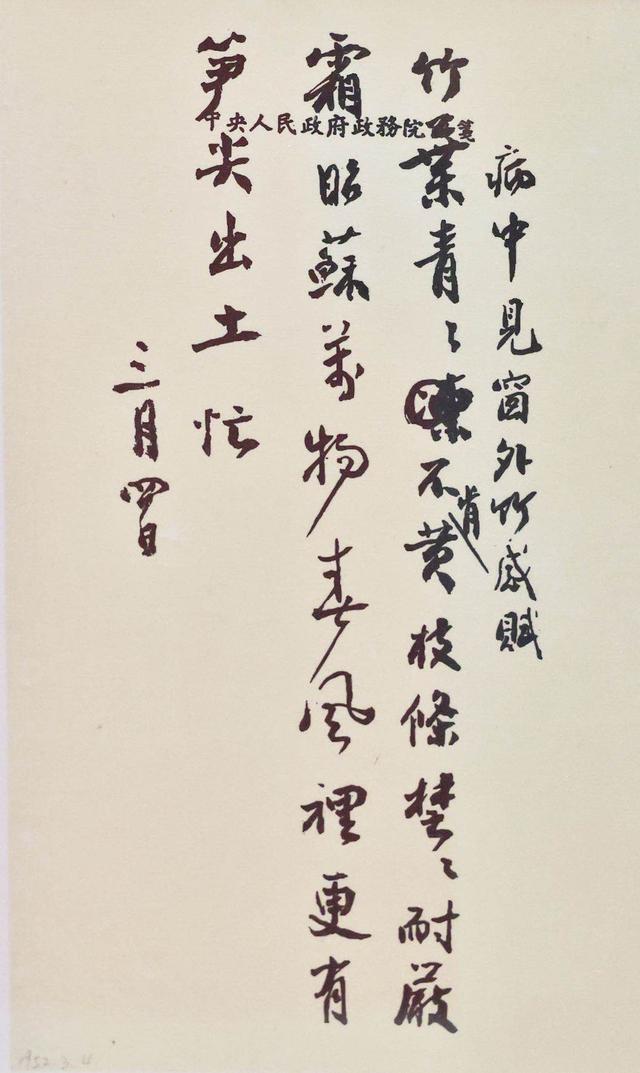 中央人民政府政務院箋
病中見窗外竹感賦
竹葉青〻不肯黄枝條楚〻耐嚴
霜昭蘇萬物春風裡更有
笋尖出土忙
三月四日
1952.3.4